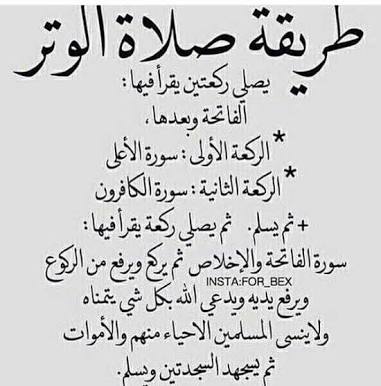 طريقة صلاة الوتر
يصلي ركعتين يقرأ فيها:
الفاتحة وبعدها،
* الركعة الأولى: سورة الأعلى
* الركعة الثانية: سورة الكافرون
+ ثم يسلم. ثم يصلي ركعة يقرأ فيها:
سورة الفاتحة والإخلاص ثم يركع ويرفع من الركوع
INSTA:FOR_BEX
ويرفع يديه ويدعي الله بكل شي يتمناه
ولا ينسى المسلمين الاحياء منهم والأموات
ثم يسجهد السجدتين ويسلم.